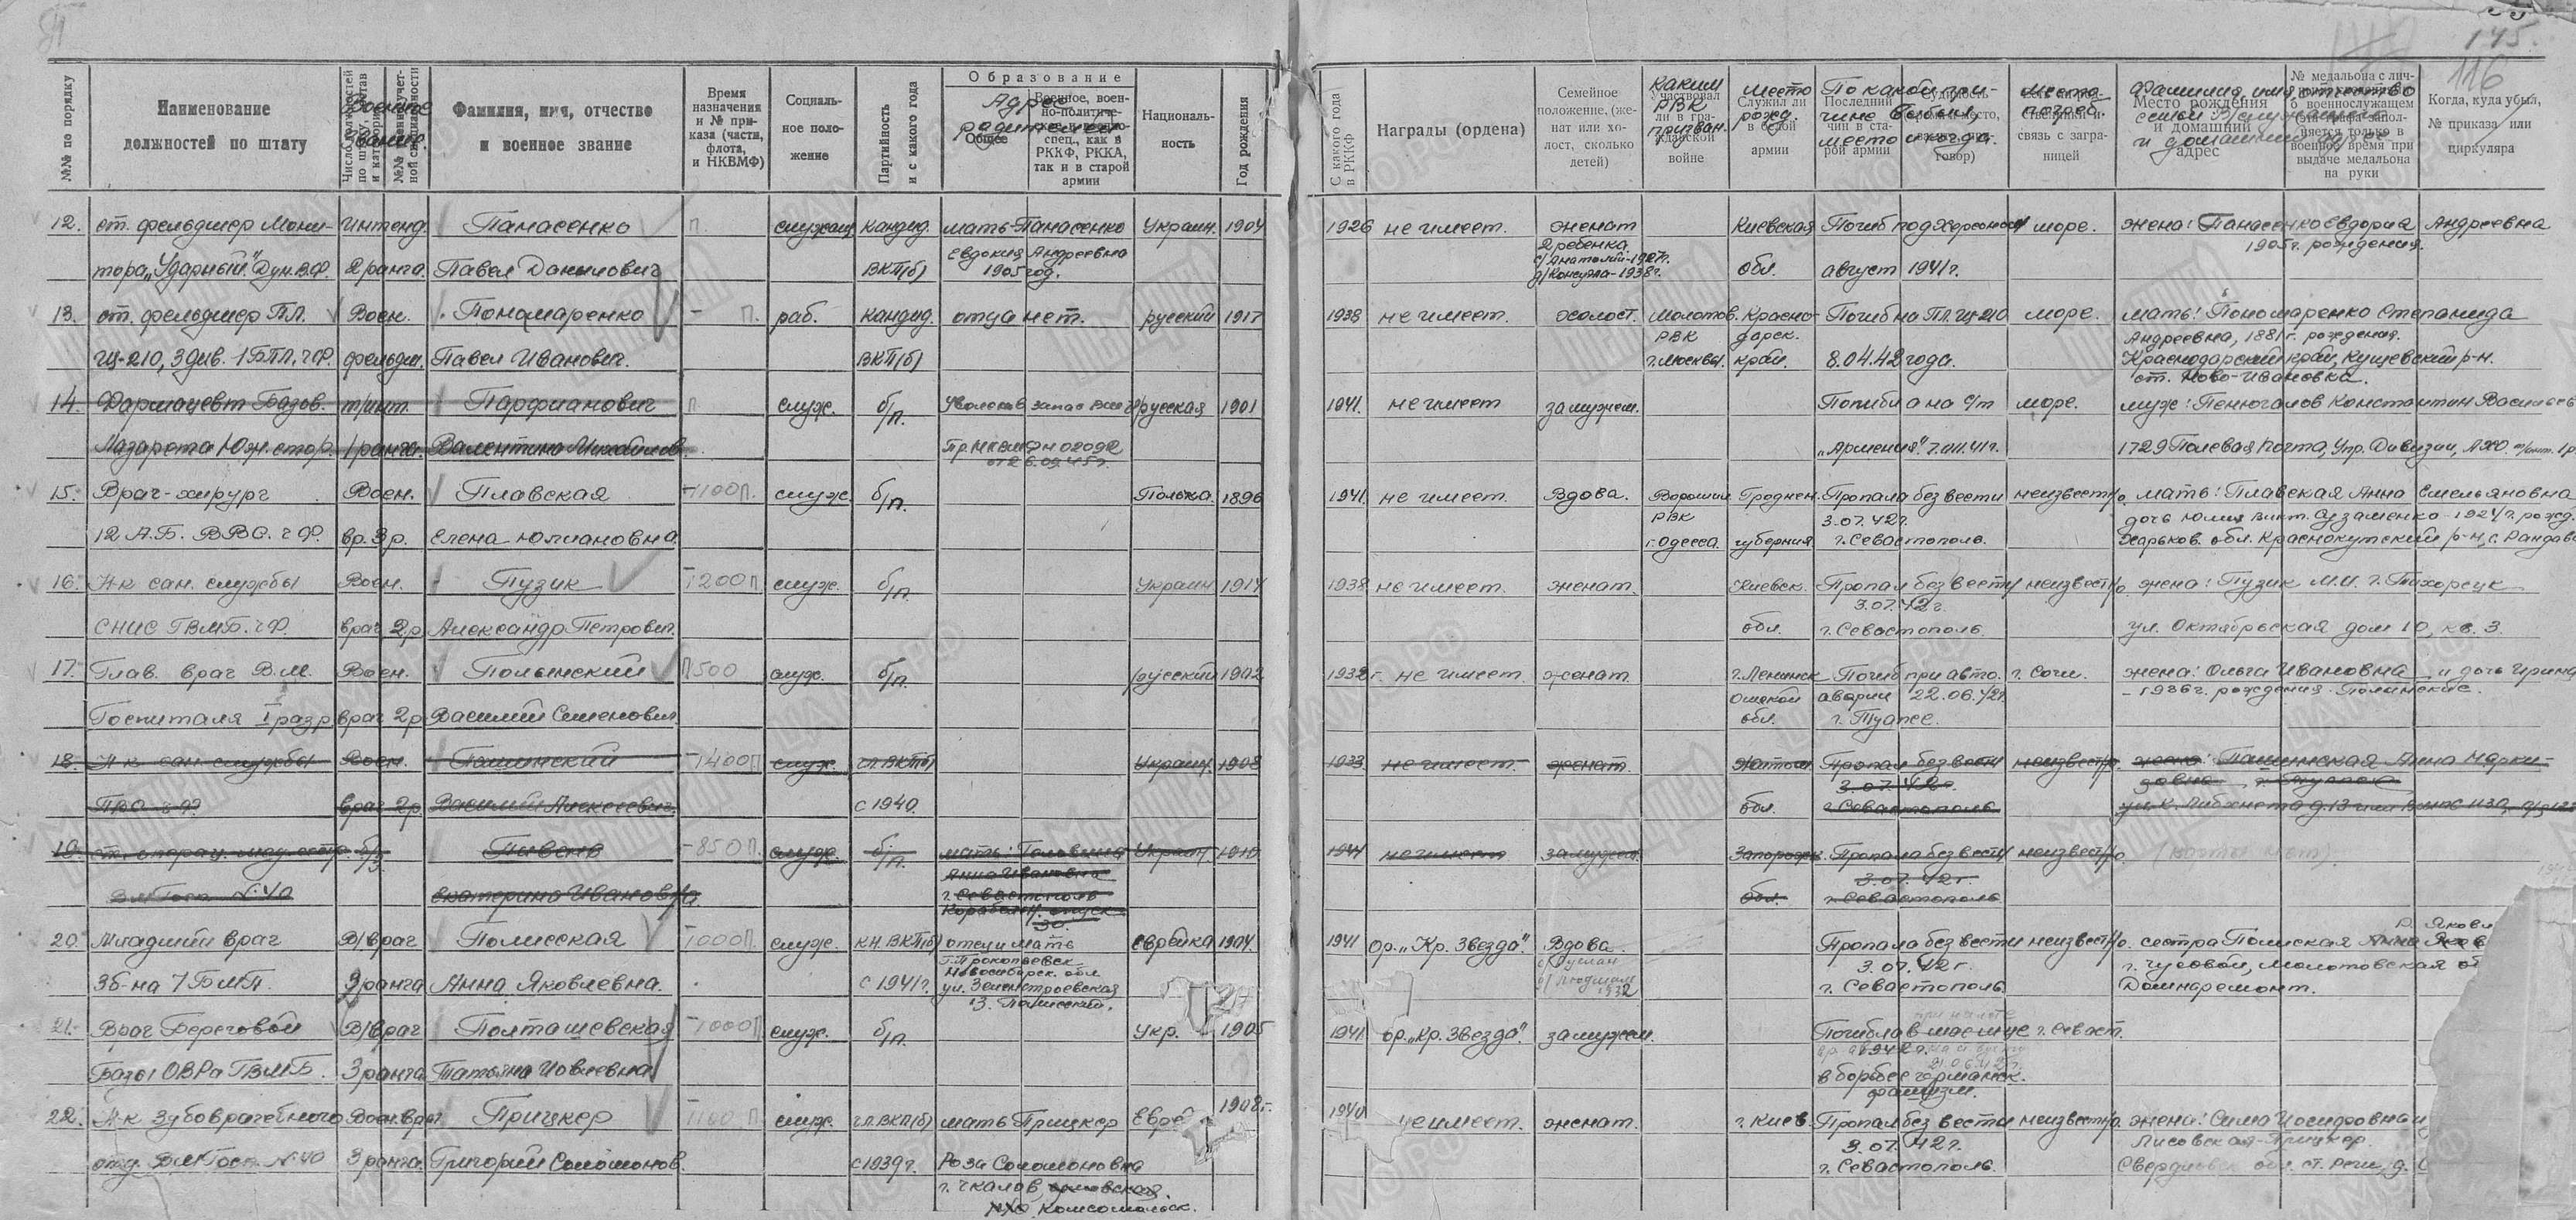 145.
116
№№ по порядку
Наименование должностей по штату
Военное звание.
Фамилия, имя, отчество и военное звание
Время назначения и № приказа (части, флота, и НКВМФ)
Социальное положение
Партийность и с какого года
Образование
Адрес родителей
Общее
Военное, военно-политическое, спец., как в РККФ, РККА, так и в старой армии
Национальность
Год рождения
С какого года в РККФ
Награды (ордена)
Семейное положение, (женат или холост, сколько детей)
Каким РВК призван.
Участвовал ли в гражданской войне
Место рожд.
Служил ли в белой армии
По какой причине выбыл, место и когда.
Последний чин в старой армии
место погреб.
связь с заграницей
Фамилия, имя, отчество семьи в/служащего и домашний адрес
Место рождения и домашний адрес
№ медальона с личным б военнослужащем (эта графа заполняется только в военное время при выдаче медальона на руки
Когда, куда убыл, № приказа или циркуляра
12. ст. фельдшер Мони- Интенд. Панасенко П. служащ. кандид. мать-Панасенко Украин. 1904 1926 не имеет. женат Киевская Погиб под Херсоном море. жена: Панасенко Евдория Андреевна
2 ребенка Евдокия Андреевна 1905г. рождения.
тора "Ударный" Дун.В.Ф. 2 ранга. Павел Данилович ВКП(б) 1905 год. с/Анатолий-1927г. обл. август 1941г.
13. ст. фельдшер ПЛ. Воен. Пономаренко П. раб. кандид. отца нет. русский 1917 1938 не имеет. холост. Молотов. Красно- Погиб на ПЛ. Щ-210 море. мать: Пономаренко Степанида
РВК дарск. Андреевна, 1881г. рождения.
Щ-210, 3 див. 1 БПЛ, ЧФ. фельдш. Павел Иванович. ВКП(б) г. Москвы. край. 8.04.42 года. Краснодарский край, Кущевский р-н.
ст. Ново-Ивановка.
14. Фармацевт Базов. т/инт. Парфианович П. служ. б/п. Уволена в запас ВМФ русская 1901 1941. не имеет замужем. Погибла на с/т море. муж: Пенюгалов Константин Васильев
Лазарета Юж. стор. 1 ранга. Валентина Михайлов. Пр. НКВМФ № 02092 "Армения" 7.XI.41г. 1729 Полевая почта, Упр. Дивизии, АХО.
от 26.09.45г.
15. Врач-хирург Воен. Плавская 1100 П. служ. б/п. Полька. 1896 1941. не имеет. Вдова. Ворошил. Гроднен. Пропала без вести неизвестно. мать: Плавская Анна Емельяновна
РВК 3.07.42г. дочь Юлия Викт. 1924г. рожд.
12 А.Б. ВВС. ЧФ. вр. 3 р. Елена Юлиановна. г. Одесса. губерния г. Севастополь. Харьков. обл. Краснокутский р-н,
16. Н-к сан. службы Воен. Пузик 1200 П. служ. б/п. Украин 1914 1938. не имеет. женат. Киевск. Пропал без вести неизвестно. жена: Пузик М.И. г. Тихорецк
3.07.42г.
СНИС ГВМБ. ЧФ. врач 2 р. Александр Петрович. обл. г. Севастополь. ул. Октябрьская дом 10, кв. 3.
17. Глав. врач В.М. Воен. Полынский П 500 служ. б/п. русский 1902 1932г. не имеет. женат г. Ленинск Погиб при авто. г. Сочи. жена: Ольга Ивановна и дочь Ирина
Омской аварии 22.06.42г. - 1926г. рождения. Полынские.
Госпиталя I разр. врач 2 р. Василий Семенович. обл. г. Туапсе.
18. Н-к сан. службы Воен. Пашинский 1400 П служ. чл. ВКП(б) Украин. 1908 1933 не имеет. женат. Житом. Пропал без вести неизвестно. жена: Пашинская Анна Марки-
3.07.42г.
врач 2 р. Василий Алексеевич. с 1940. обл. г. Севастополь
19. ст. операц. мед. сестр. в/з. Пивень 850 П. служ. б/п. мать: Головина Украин 1910 1941 не имеет замужем. Запорожс. Пропала без вести неизвестно.
Анна Ивановна 3.07.42г.
ВМ Госп. №40 Екатерина Ивановна. г. Севастополь обл. г. Севастополь
30.
20. Младший врач В/врач Полисская 1000 П. служ. кн. ВКП(б) отец и мать Еврейка 1904. 1941 ор. "Кр. Звезда". Вдова. Пропала без вести неизвестно. сестра Полисская
г. Прокопьевск 3.07.42г. г. Чусовой, Молотовская
Новосибирск. обл.
3б-на 7 БМП. 3 ранга Анна Яковлевна. с 1941г. ул. Землестроевская 1932 г. Севастополь Домнаремонт.
13. Полисский.
21. Врач Береговой В/врач Полташевская 1000 П служ. б/п. Укр. 1905 1941. ор. "Кр. Звезда". замужем. Погибла г. Севаст.
1942г.
Базы ОВРа ГВМБ. 3 ранга Татьяна Иовлевна в борьбе с германск.
фашизм.
22. Н-к Зубоврачебного Воен.врач Прицкер 1100 П служ. чл. ВКП(б) мать Прицкер Евре 1908г. 1940 не имеет. женат. г. Киев Пропал без вести неизвестно. жена: Сима Иосифовна
3.07.42г. Лисовская-Прицкер.
отд. ВМ Госп. №40 3 ранга. Григорий Соломонов. с 1939г. Роза Соломоновна г. Севастополь. Свердловск. обл. ст. Реши, д.
г. Чкалов,
Комсомольск.